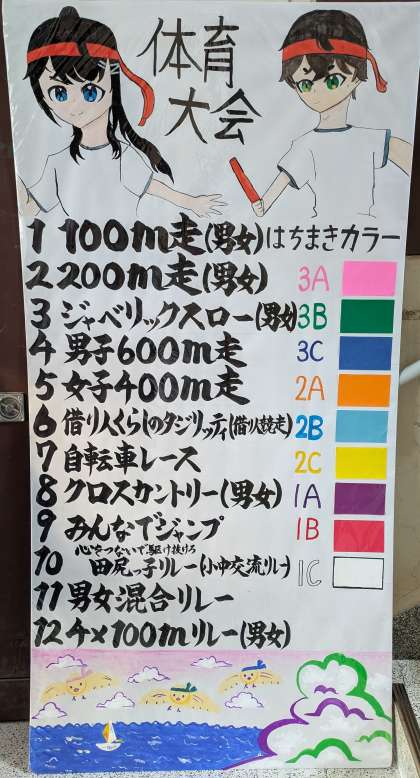 体育
大会
1 100m走(男女)
2 200m走(男女)
3 ジャベリックスロー(男女)
4 男子600m走
5 女子400m走
6 借り人くらしのタジリッティ(借り人競走)
7 自転車レース
8 クロスカントリー(男女)
9 みんなでジャンプ
心をつないで駆け抜けろ
10 田尻っ子リレー(小中交流リレー)
11 男女混合リレー
12 4×100mリレー(男女)
はちまきカラー
3A
3B
3C
2A
2B
2C
1A
1B
1C